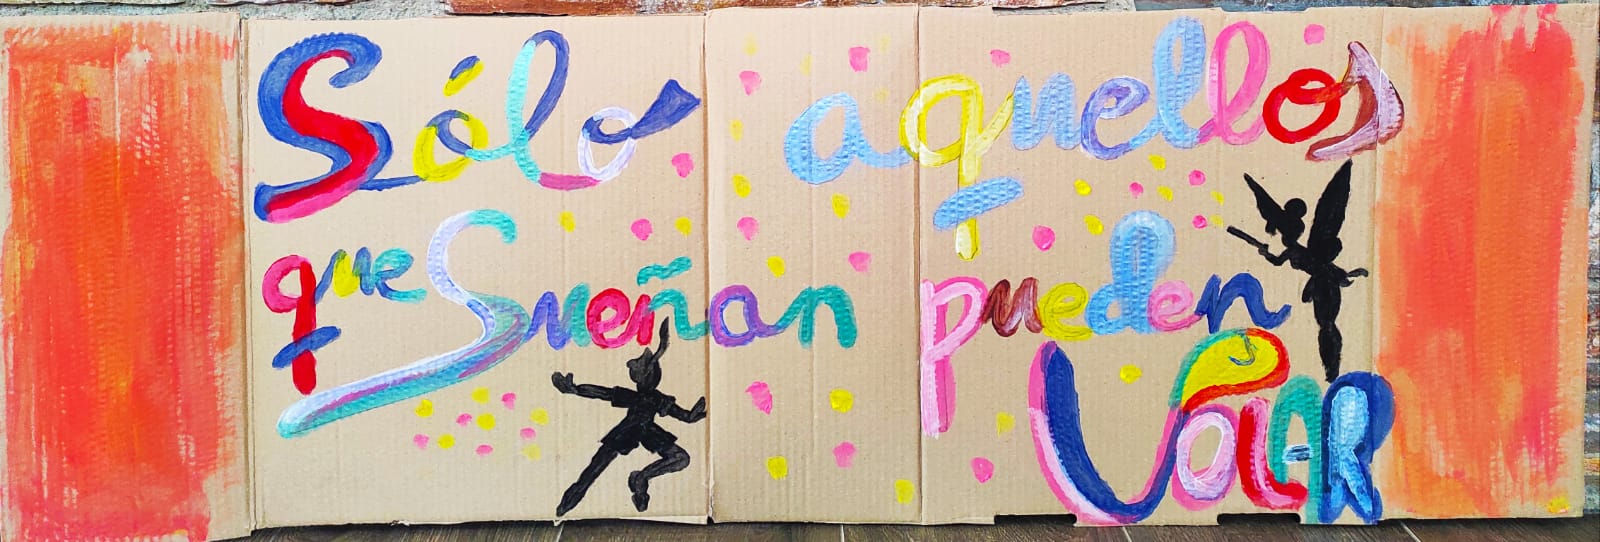 Sólo aquellos
que Sueñan pueden
VOLAR